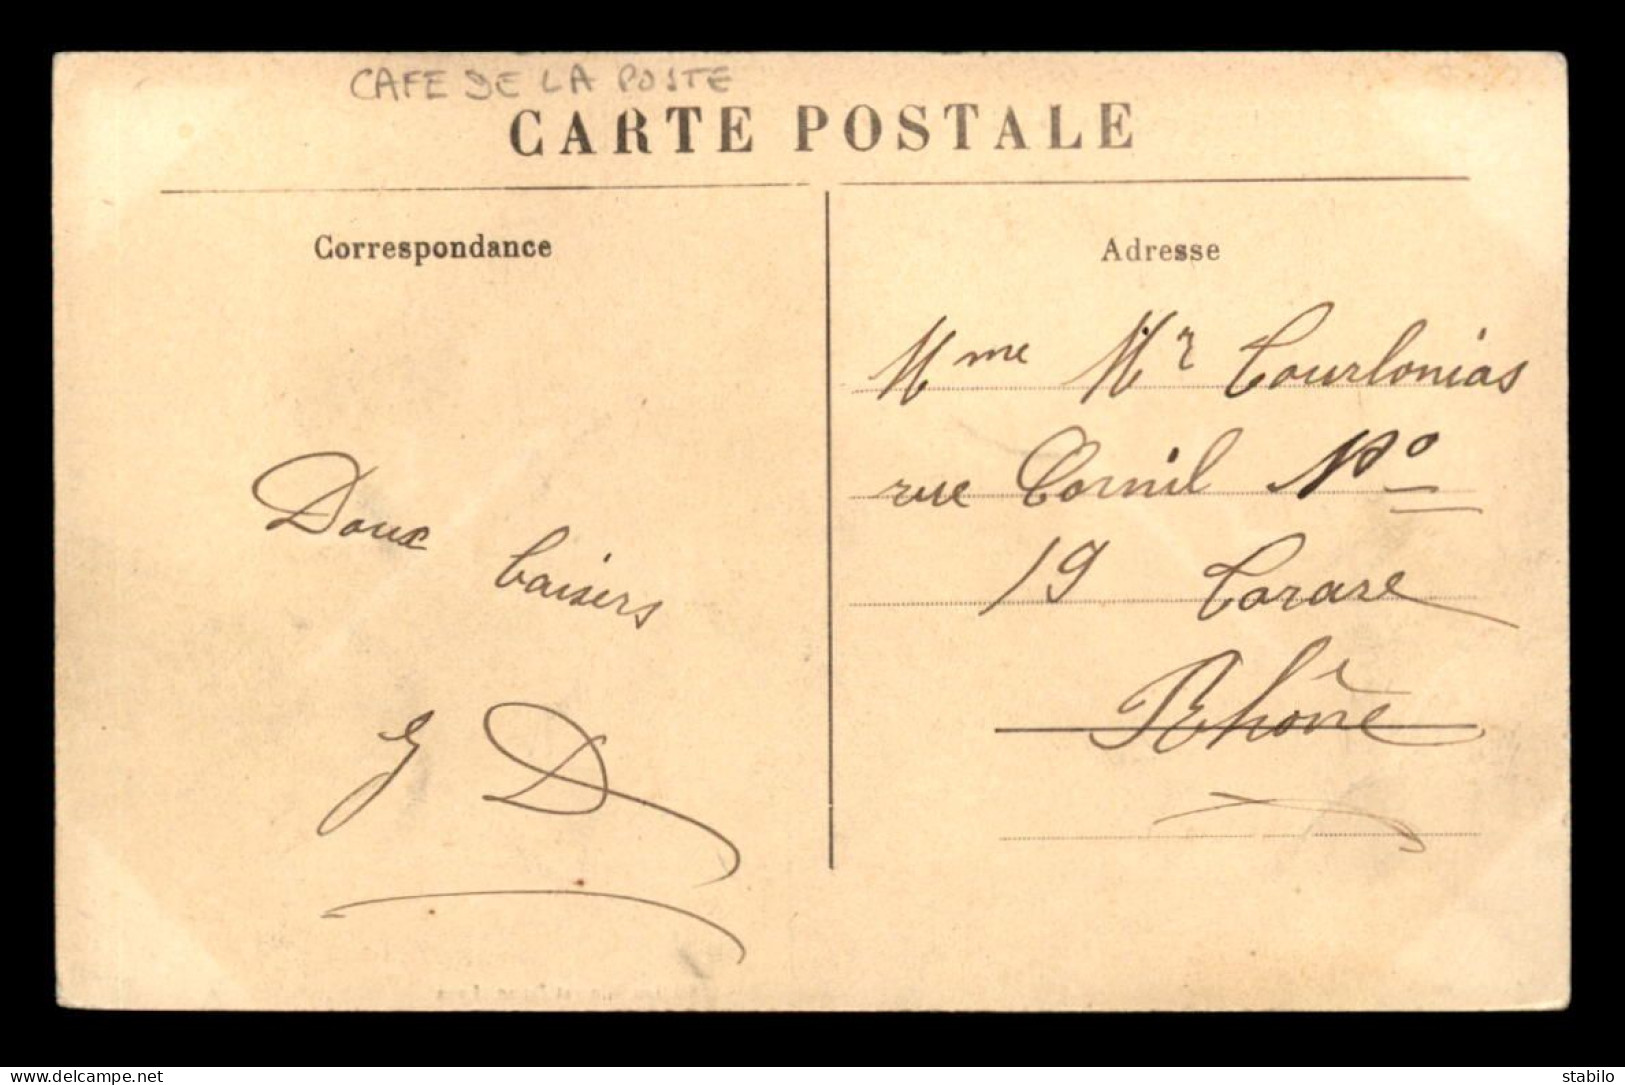 CAFE DE LA POSTE
CARTE POSTALE
Correspondance
Doux baisers
G D
Adresse
Mme Mr Courlonias
rue Cornil No
19 Tarare
Rhône
www.delcampe.net
stabilo